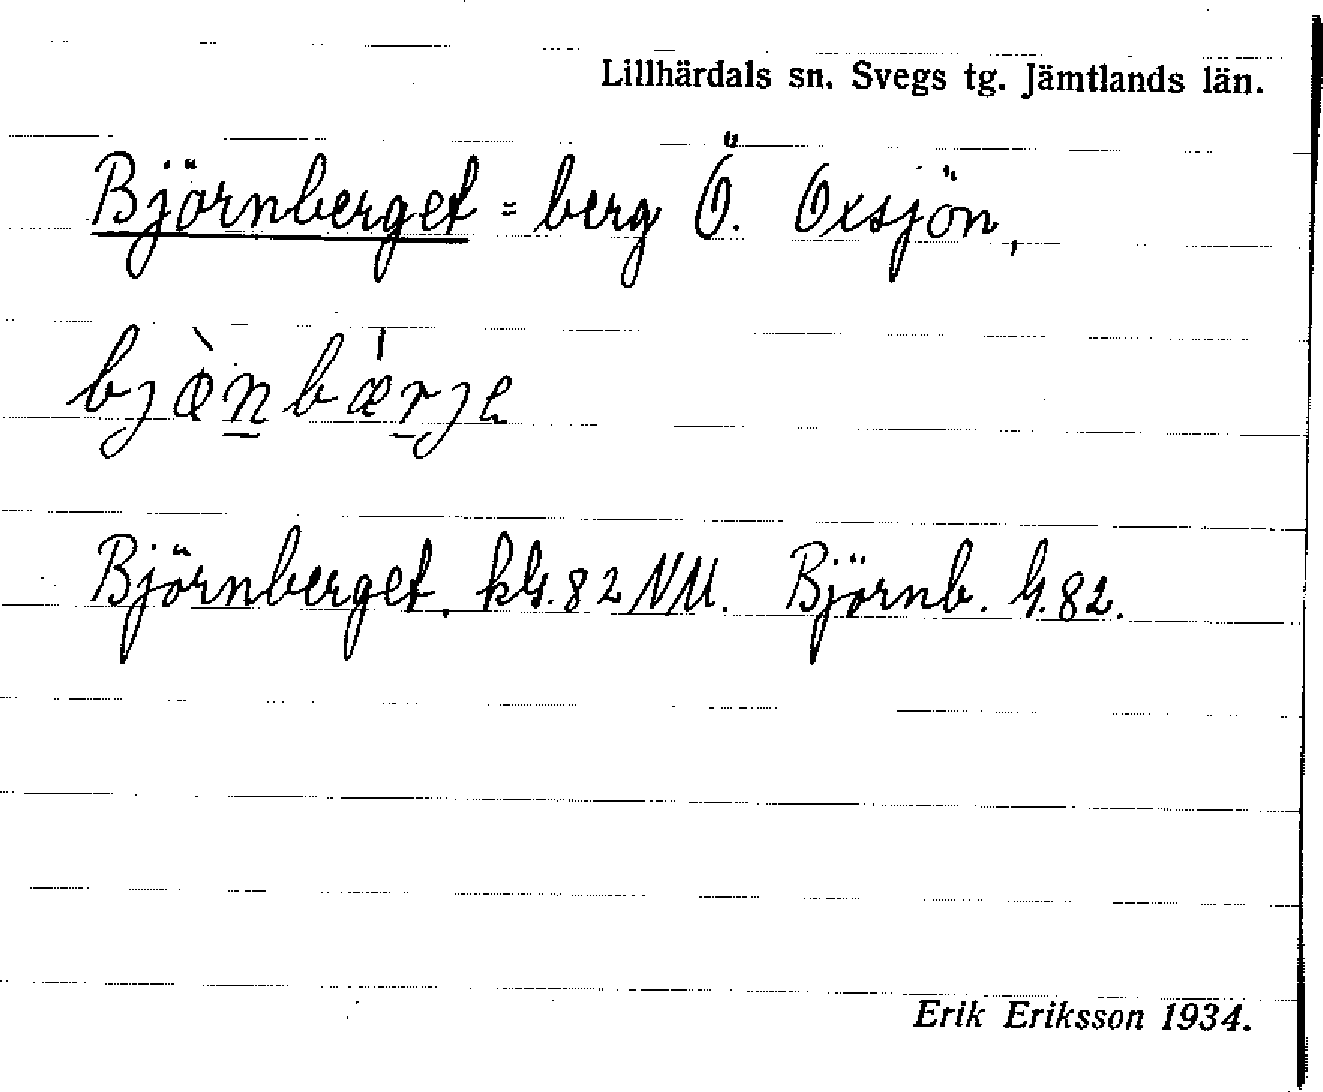 Lillhärdals sn. Svegs tg. Jämtlands län.
Björnberget = berg Ö. Oxsjön,
bjɵ̀n̠bǽr̠je
Björnberget. kG.82NU. Björnb. G.82.
Erik Eriksson 1934.